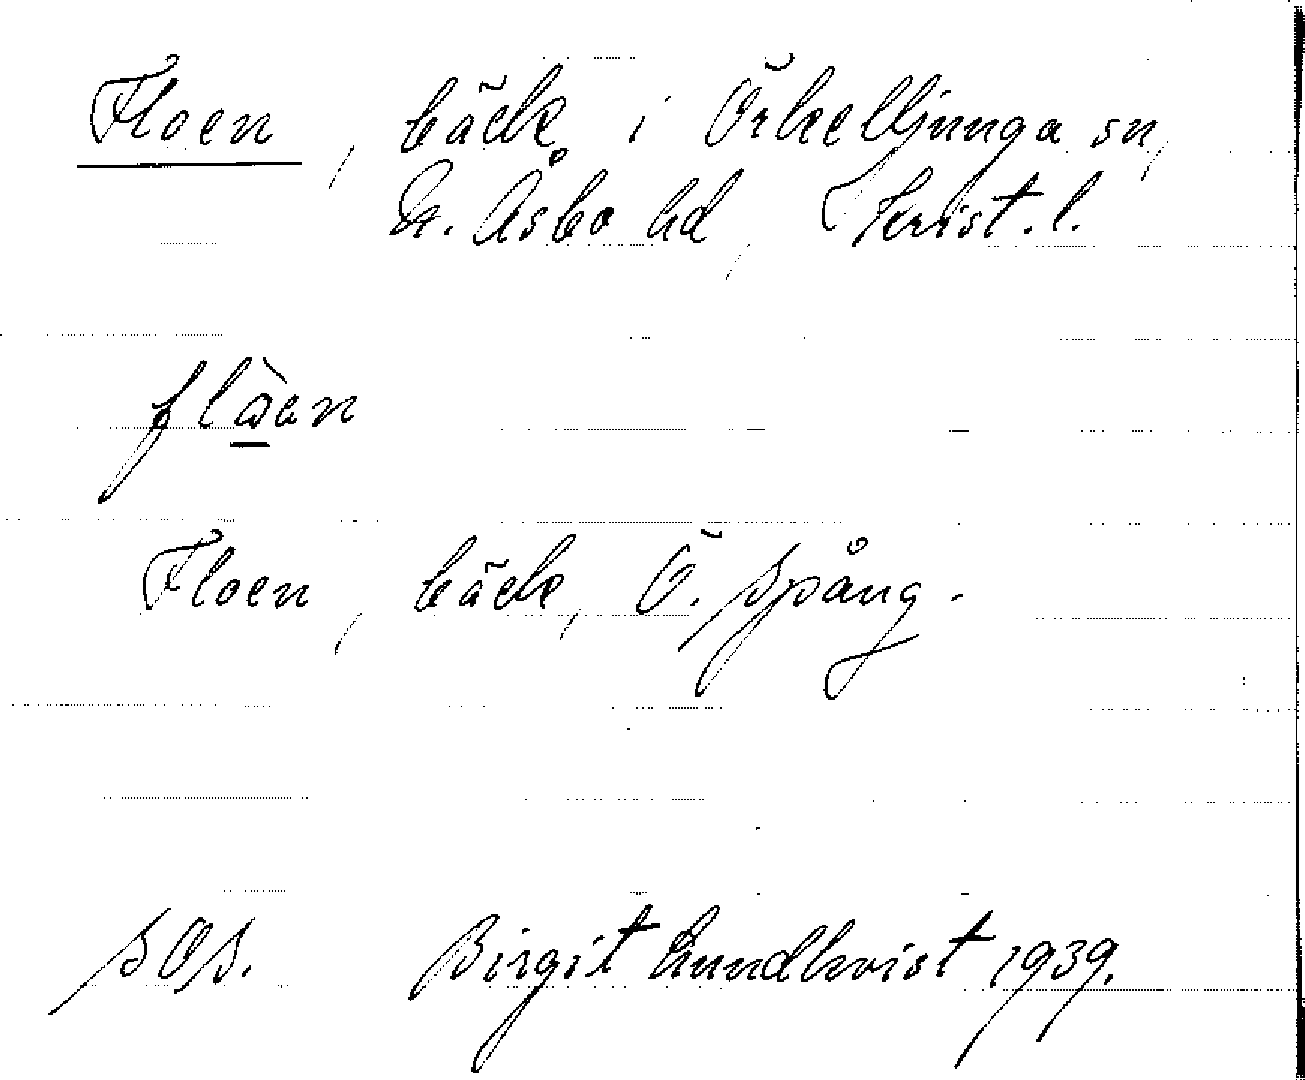 Floen, bäck i Örkelljunga sn,
N. Åsbo hd, Krist. l.
Floen, bäck, Ö. Spång.
SOS. Birgit Lundkvist 1939.